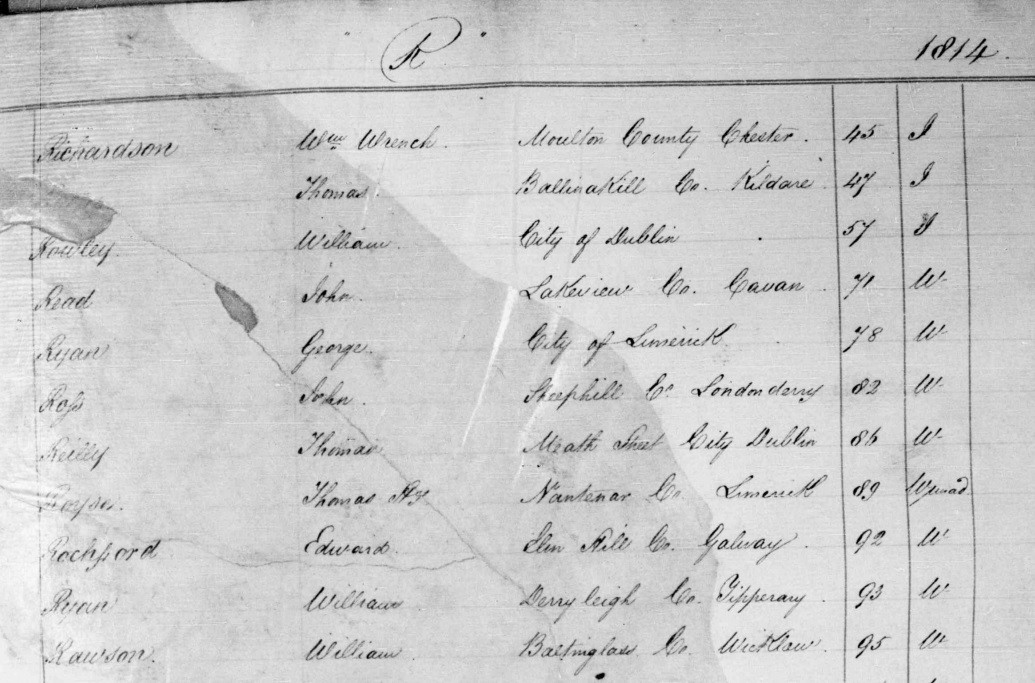 "R" 1814.
Richardson Wm Wrench. Moulton County Chester. 45 I
Thomas. Ballinakill Co. Kildare. 47 I
Rowley. William. City of Dublin. 57 I
Read John. Lakeview Co. Cavan 71 W
Ryan George. City of Limerick. 78 W
Ross John. Sheephill Co. Londonderry 82 W
Reilly Thomas Meath Street City Dublin 86 W
Royse. Thomas Hy Nantenar Co. Limerick 89 W
Rochford Edward. Elm Hill Co. Galway. 92 W
Ryan William Derryleigh Co. Tipperary. 93 W
Rawson. William. Baltinglass Co. Wicklow. 95 W